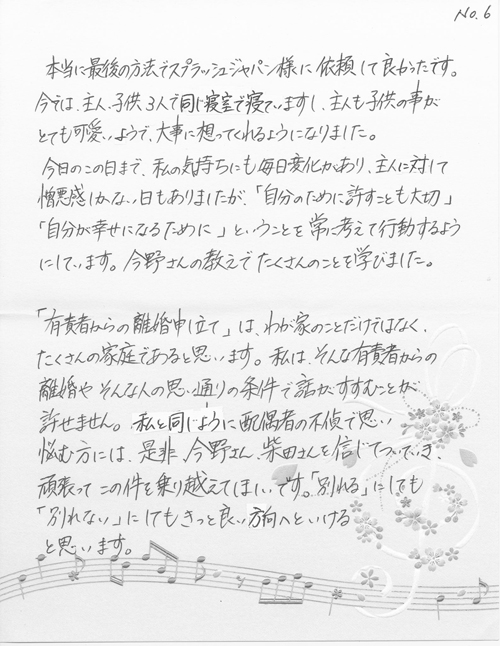 No.6
本当に最後の方法でスプラッシュジャパン様に依頼して良かったです。
今では、主人、子供、3人で同じ寝室で寝ていますし、主人も子供の事が
とても可愛いようで、大事に想ってくれるようになりました。
今日のこの日まで、私の気持ちにも毎日変化があり、主人に対して
憎悪感しかない日もありましたが、「自分のために許すことも大切」
「自分が幸せになるために」ということを常に考えて行動するよう
にしています。今野さんの教えでたくさんのことを学びました。
「有責者からの離婚申し立て」は、わが家のことだけではなく、
たくさんの家庭であると思います。私は、そんな有責者からの
離婚やそんな人の思い通りの条件で話がすすむことが
許せません。私と同じように配偶者の不倫で思い
悩む方には、是非、今野さん、柴田さんを信じてついていき、
頑張ってこの件を乗り越えてほしいです。「別れる」にしても
「別れない」にしてもきっと良い方向へといける
と思います。